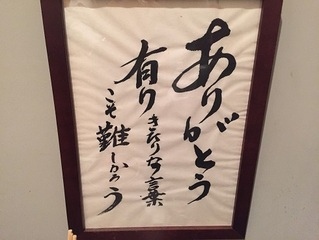 ありがとう
有りきたりな言葉
こそ難しかろう